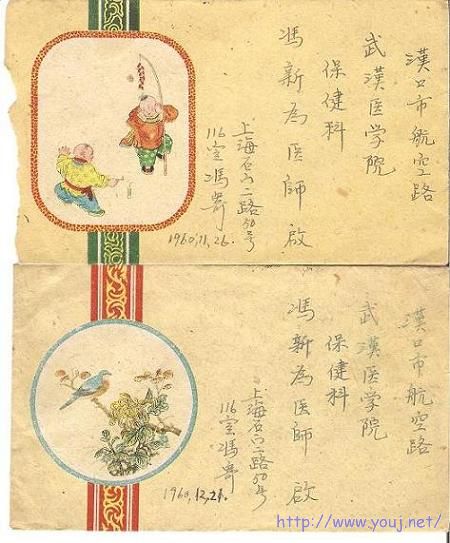 漢口市航空路
武漢医学院
保健科
馮新為医師 啟
上海石门二路50号
116室馮寄
1960,11,26.
漢口市航空路
武漢医学院
保健科
馮新為医師 啟
上海石门二路50号
116室馮寄
1960,12,21.
http://www.youj.net/